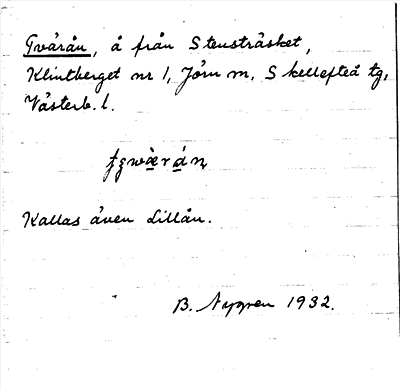 Tvärån, å från Stensträsket,
Klintberget nr 1, Jörn m, Skellefteå tg,
Västerb. l.
Kallas även Lillån.
B. Nygren 1932.